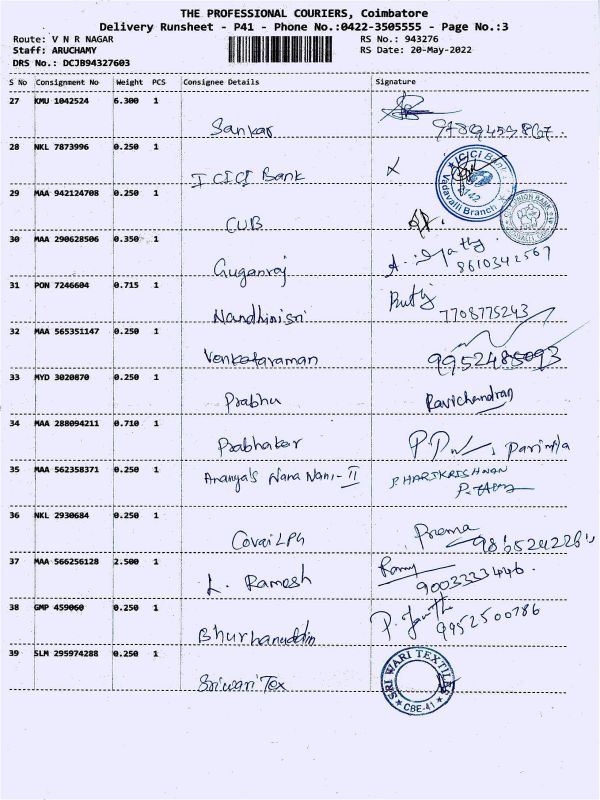 THE PROFESSIONAL COURIERS, Coimbatore
Delivery Runsheet - P41 - Phone No.:0422-3505555 - Page No.:3
Route: V N R NAGAR RS No.: 943276
Staff: ARUCHAMY RS Date: 20-May-2022
DRS No.: DCJB94327603
S No Consignment No Weight PCS Consignee Details Signature
27 KMU 1042524 6.300 1
Sankar
28 NKL 7873996 0.250 1
ICICI Bank
ICICI Bank
Vadavalli Branch
29 MAA 942124708 0.250 1
CUB
30 MAA 290628506 0.350 1
Guganraj
8610342567
31 PON 7246604 0.715 1
Nandhinisri 7708775243
32 MAA 565351147 0.250 1
Venkataraman 9952485093
33 MYD 3020870 0.250 1
Prabhu Ravichandran
34 MAA 288094211 0.710 1
Prabhakar Parimla
35 MAA 562358371 0.250 1
Ananya's Nana Nani-II P HARIKRISHNAN
36 NKL 2930684 0.250 1
Covai LPG Prema
37 MAA 566256128 2.500 1
L. Ramesh 9003333446.
38 GMP 459060 0.250 1
Bhurhanuddin 9952500786
39 SLM 295974288 0.250 1
Sriwari Tex
SRI WARI TEXTILES
CBE-41